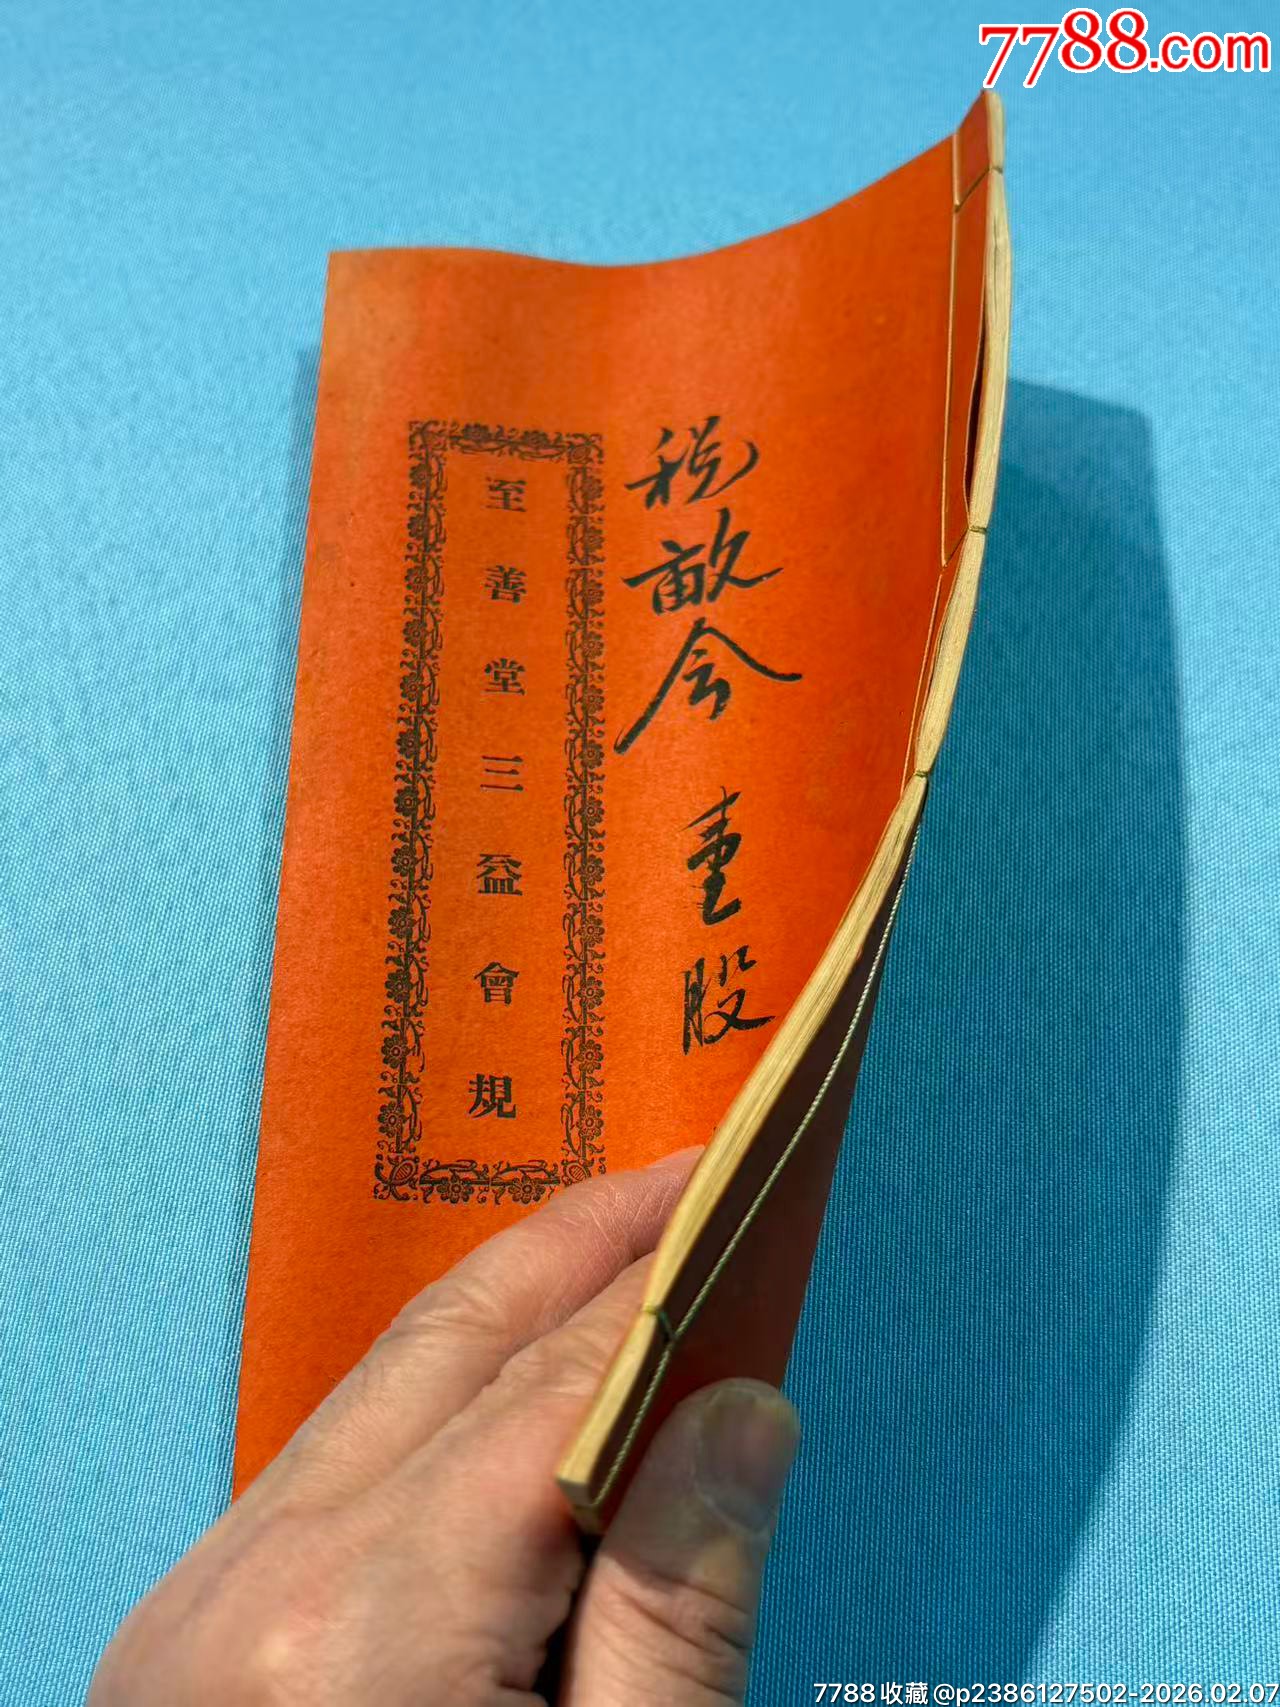 7788.com
税畝会 壹股
至善堂三益會規
7788收藏@p2386127502-2026.02.07